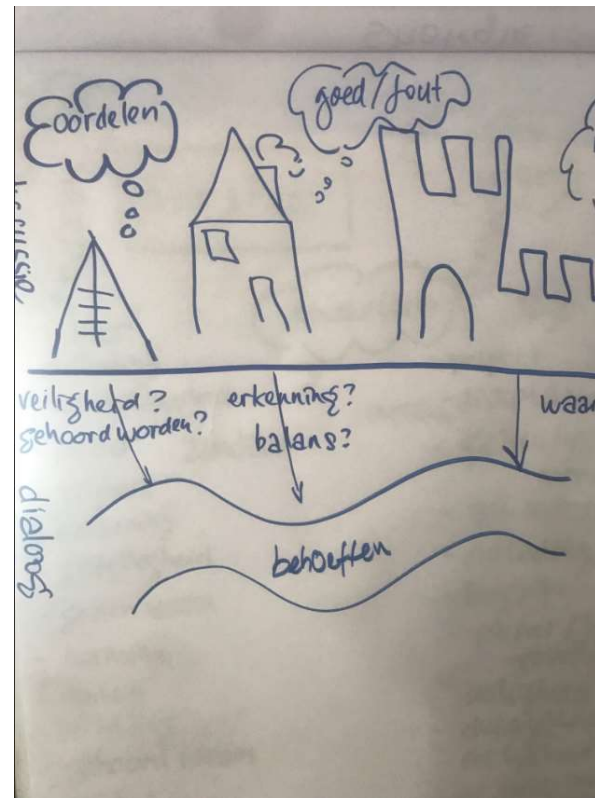 oordelen
goed/fout
veiligheid?
gehoord worden?
erkenning?
balans?
waar
dialoog
behoeften